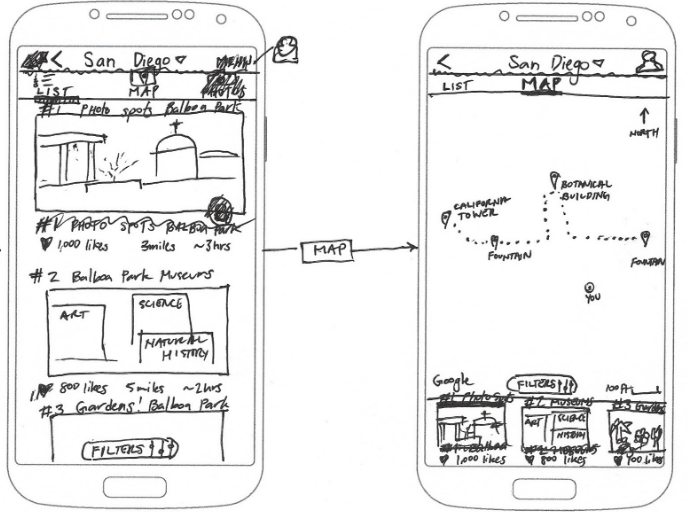 San Diego
LIST MAP PHOTOS
#1 Photo spots Balboa Park
#1 PHOTO SPOTS BALBOA PARK
1,000 likes 3miles ~3hrs
#2 Balboa Park Museums
ART
SCIENCE
NATURAL
HISTORY
800 likes 5miles ~2hrs
#3 Gardens! Balboa Park
FILTERS
MAP
San Diego
LIST MAP
NORTH
BOTANICAL
BUILDING
CALIFORNIA
TOWER
FOUNTAIN
FOUNTAIN
YOU
Google
FILTERS
100ft
#1 Photo Spots
#2 MUSEUMS
#3 Gardens
ART
SCIENCE
HISTORY
1,000 likes
800 likes
700 likes